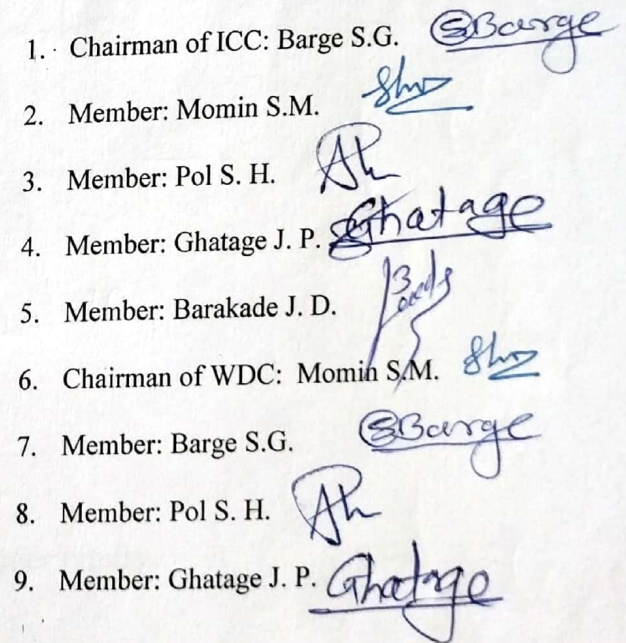 1. Chairman of ICC: Barge S.G. SBarge
2. Member: Momin S.M.
3. Member: Pol S. H.
4. Member: Ghatage J. P. Ghatage
5. Member: Barakade J. D.
6. Chairman of WDC: Momin S.M.
7. Member: Barge S.G. SBarge
8. Member: Pol S. H.
9. Member: Ghatage J. P. Ghatage